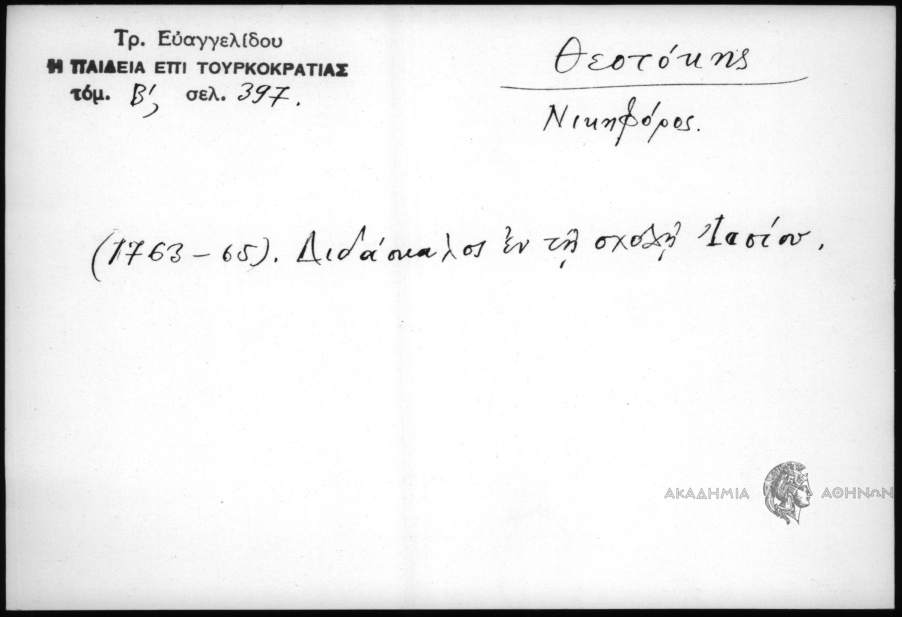 Τρ. Εὐαγγελίδου
Η ΠΑΙΔΕΙΑ ΕΠΙ ΤΟΥΡΚΟΚΡΑΤΙΑΣ
τόμ. Β', σελ. 397.
Θεοτόκης
Νικηφόρος.
(1763-65). Διδάσκαλος ἐν τῇ σχολῇ Ἰασίου.
ΑΚΑΔΗΜΙΑ ΑΘΗΝΩΝ